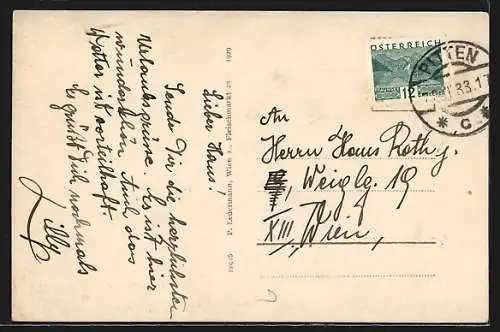 Lieber Hans!
Sende Dir die herzlichsten
Urlaubsgrüsse. Es ist hier
wunderschön. Auch das
Wetter ist vorteilhaft.
Es grüßt Dich nochmals
Lilly
P. Ledermann, Wien I., Fleischmarkt
ÖSTERREICH
12
PITTEN
33.17
* C *
An
Herrn Hans Roth
Weiglg. 19
XIII, Wien,